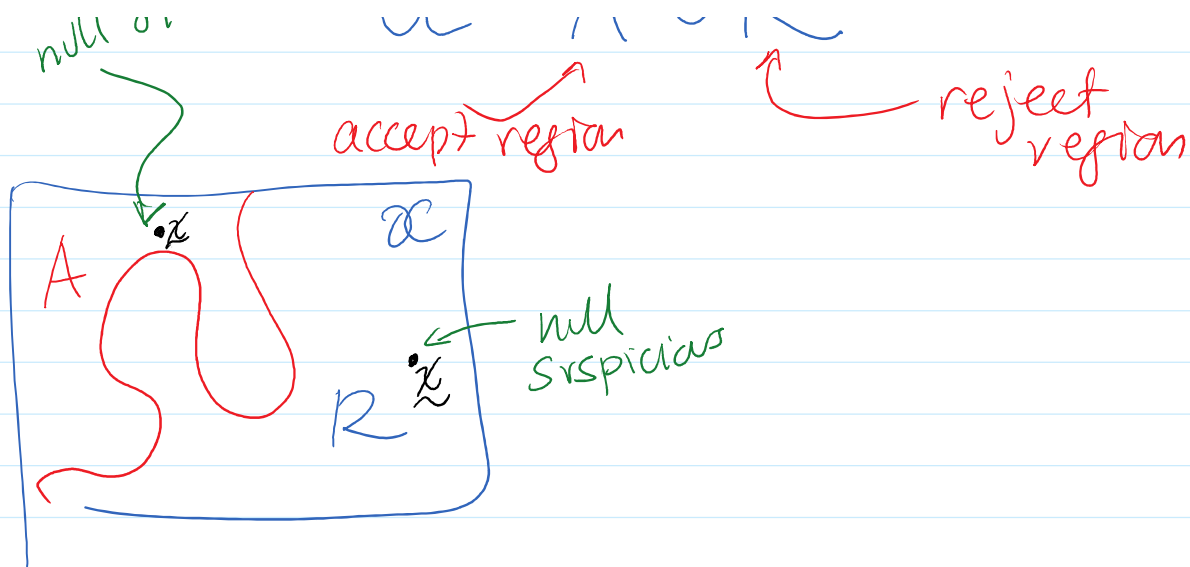 null
accept region
reject
region
x
A
X
null
srspicious
x
R